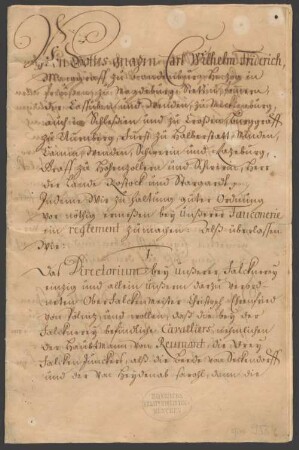 Von Gottes gnaden Carl Wilhelm Friderich,
Marggraff zu Brandenburg, Herzog in
Preußen, zu Magdeburg, Stettin, Pommern,
der Cassuben und Wenden, zu Mecklenburg,
auch in Schlesien und zu Croßen, Burggraff
zu Nürnberg, Fürst zu Halberstatt, Minden,
Camin, Wenden, Schwerin und Razeburg,
Graff zu Hohenzollern und Schwerin, Herr
der Lande Rostock und Stargardt.
Indeme Wir zu haltung guter Ordnung
vor nöthig ermeßen bey Unserer Fauconerie
ein reglement zu machen. Alß überlassen
Wir
1.
Das Directorium bey Unserer Falcknerey
einzig und allein Unserm darzu verord-
neten Ober Falckenmeister Christoph
von und wollen, daß die bey der
Falcknerey befindliche Cavalliers, nehmlichen
der Haubtmann von Reingart, die
Falcken Junckers, alß die beede von Seckendorff
und der von Heydenab sowohl, dann die